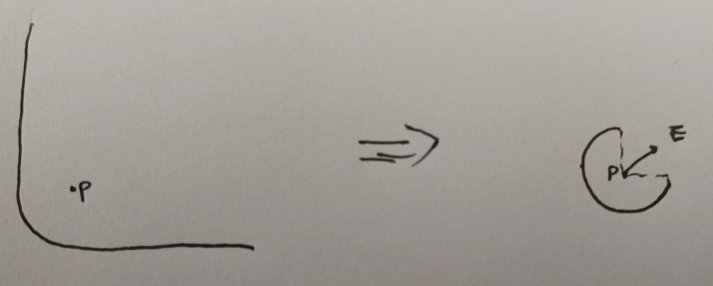 P
P
E